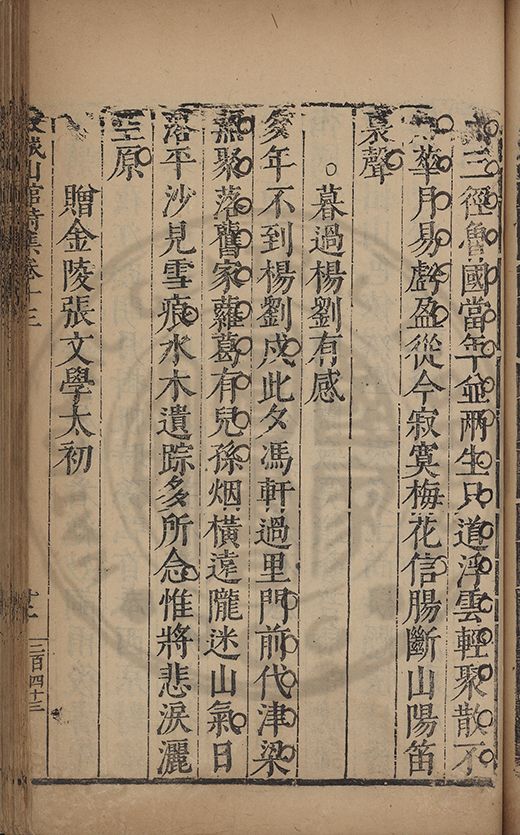 三徑魯國當年並兩生只道浮雲輕聚散不
華月易虧盈從今寂寞梅花信腸斷山陽笛
裏聲
暮過楊劉有感
年不到楊劉戍此夕馮軒過里門前代津梁
無聚落舊家蘿葛有兒孫烟橫遠隴迷山氣日
落平沙見雪痕水木遺踪多所念惟將悲淚灑
空原
贈金陵張文學太初
城山館詩集卷十三
三百四十三